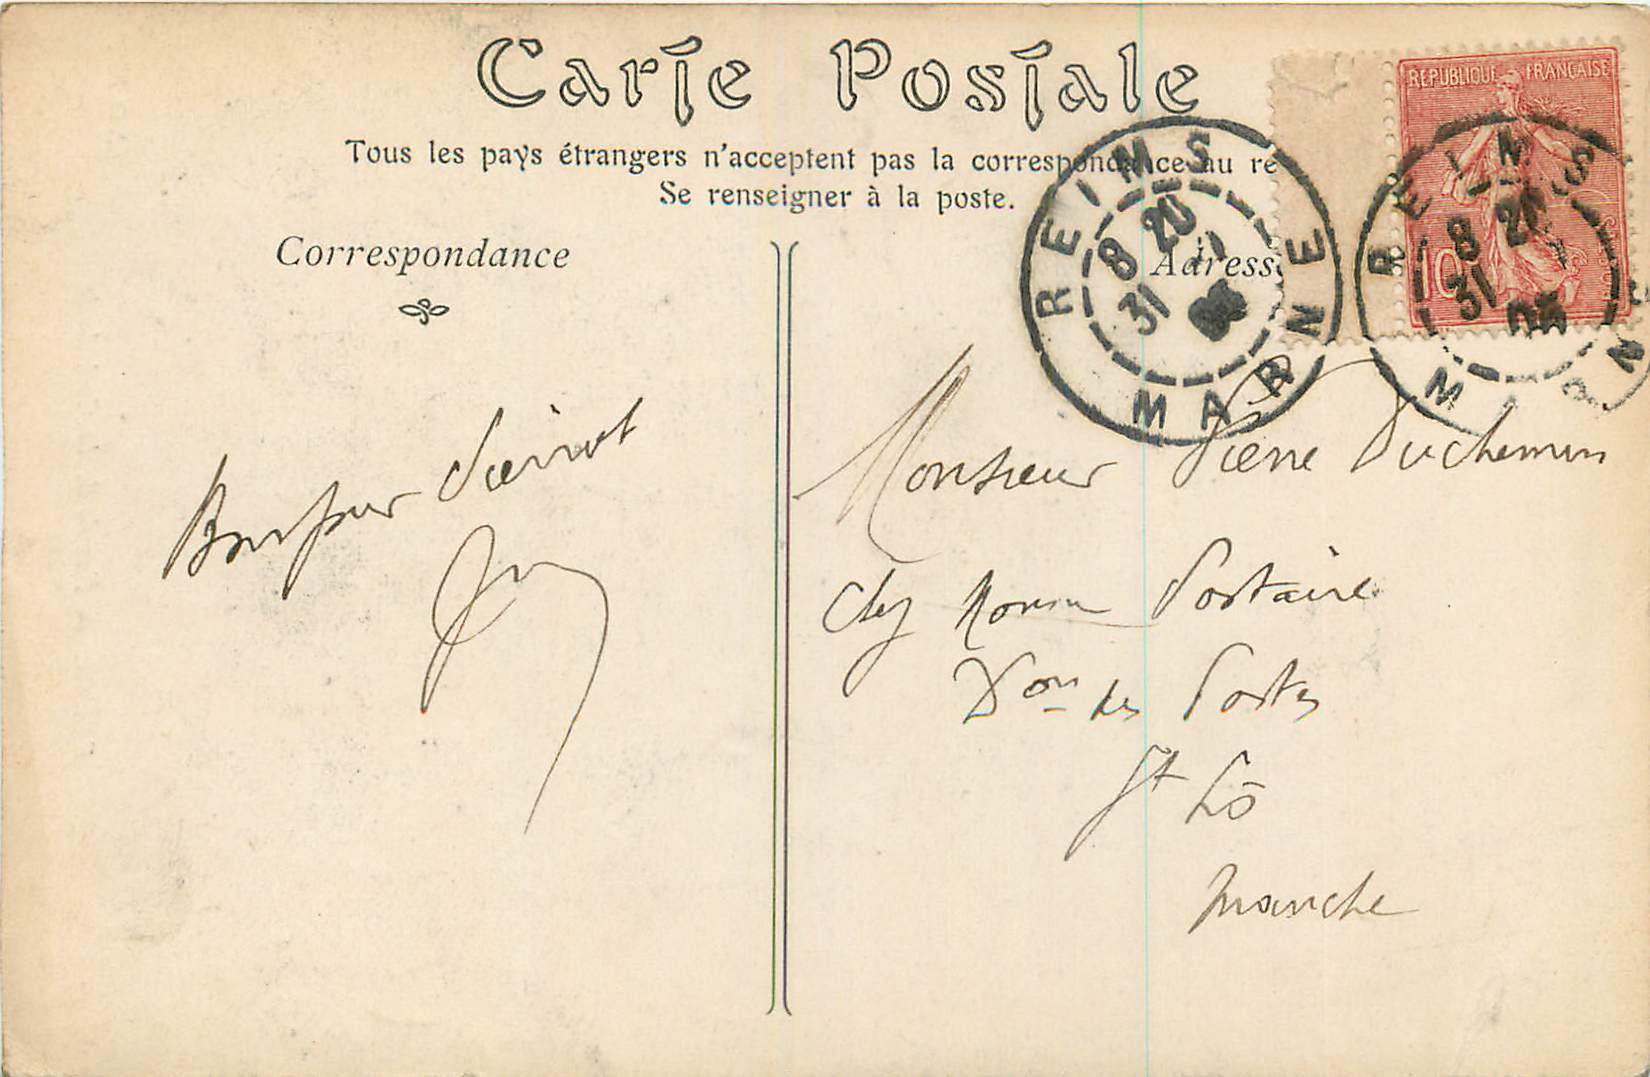 Carte Postale
Tous les pays étrangers n'acceptent pas la correspondance au re
Se renseigner à la poste.
Correspondance
Adresse
REPUBLIQUE FRANÇAISE
10
REIMS
8 20
31
MARNE
REIMS
8 20
31
05
MARNE
Bonjour Pierrot
Monsieur Pierre Duchemin
Chez Portaire
Don des Postes
St Lô
Manche